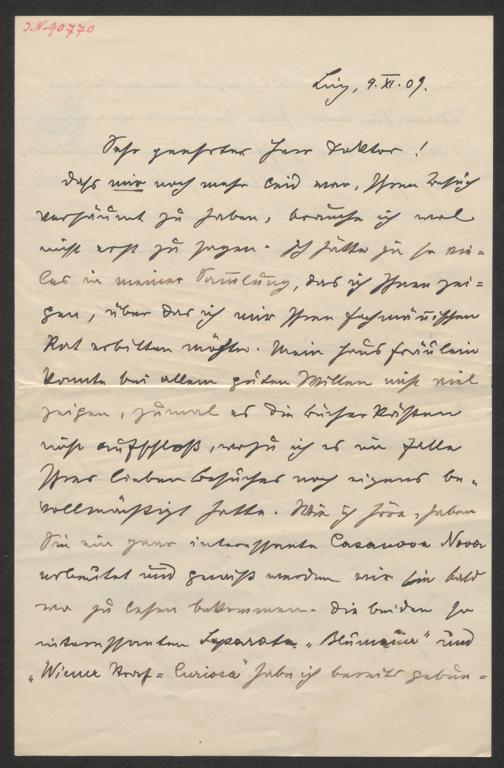 J.N. 90770
Linz, 9.XI.09.
Sehr geehrter Herr Doktor!
Daß mir noch mehr leid war, Ihren Besuch
versäumt zu haben, brauche ich wol
nicht erst zu sagen. Ich hätte ja so vie-
les in meiner Sammlung, das ich Ihnen zei-
gen, über das ich mir Ihren fachmännischen
Rat erbitten möchte. Mein Hausfräulein
konnte bei allem guten Willen nicht viel
zeigen, zumal es die Bücherkästen
nicht aufschloß, wozu ich es im Falle
Ihres lieben Besuches noch eigens be-
vollmächtigt hatte. Wie ich höre, haben
Sie ein ganz interessante Casanova Nova
erbeutet und gewiß werden wir sie bald
wo zu lesen bekommen. Die beiden so
interessanten Separata „Blumauer" und
„Wiener Kopf-Curiosa" habe ich bereits gebun-